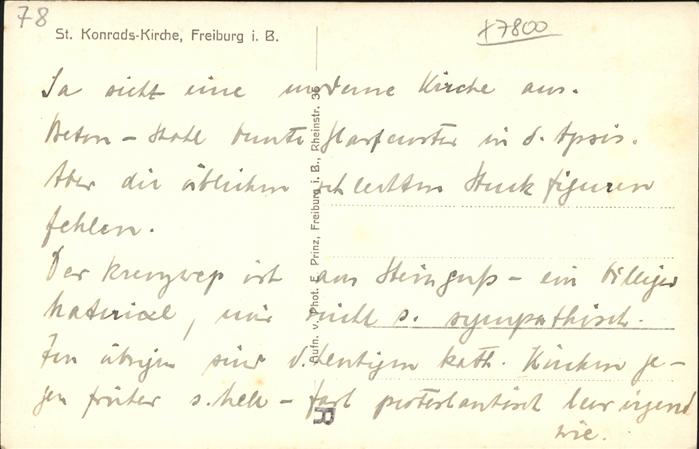 78
St. Konrads-Kirche, Freiburg i. B.
x 7800
Ja sieht eine moderne Kirche aus.
Beton - Stahl bunte Glasfenster in d. Apsis.
Aber die üblichen schlechten Stuckfiguren
fehlen.
Der Kreuzweg ist aus Steinguß - ein billiges
Material, mir nicht s. sympathisch.
Im übrigen sind d. heutigen kath. Kirchen ge-
gen früher s. hell - fast protestantisch leer irgend
wie.
Aufn. v. Phot. E. Prinz, Freiburg i. B., Rheinstr. 36
R